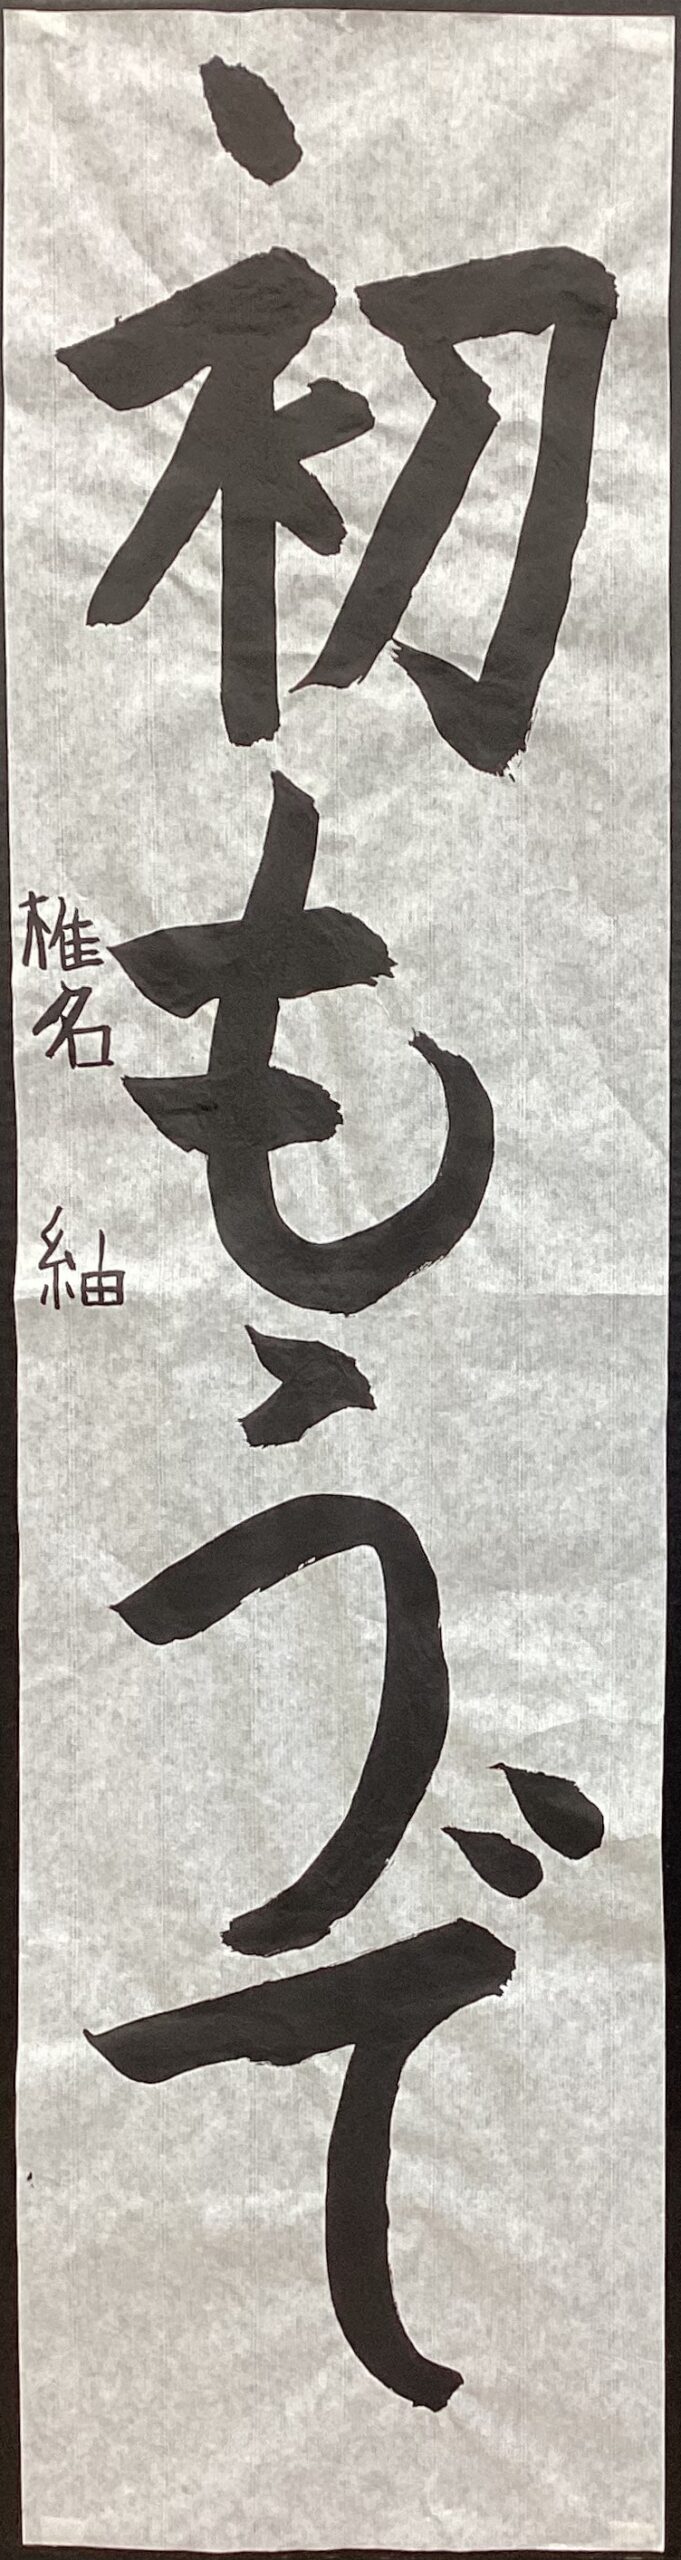 初もうで
椎名 紬